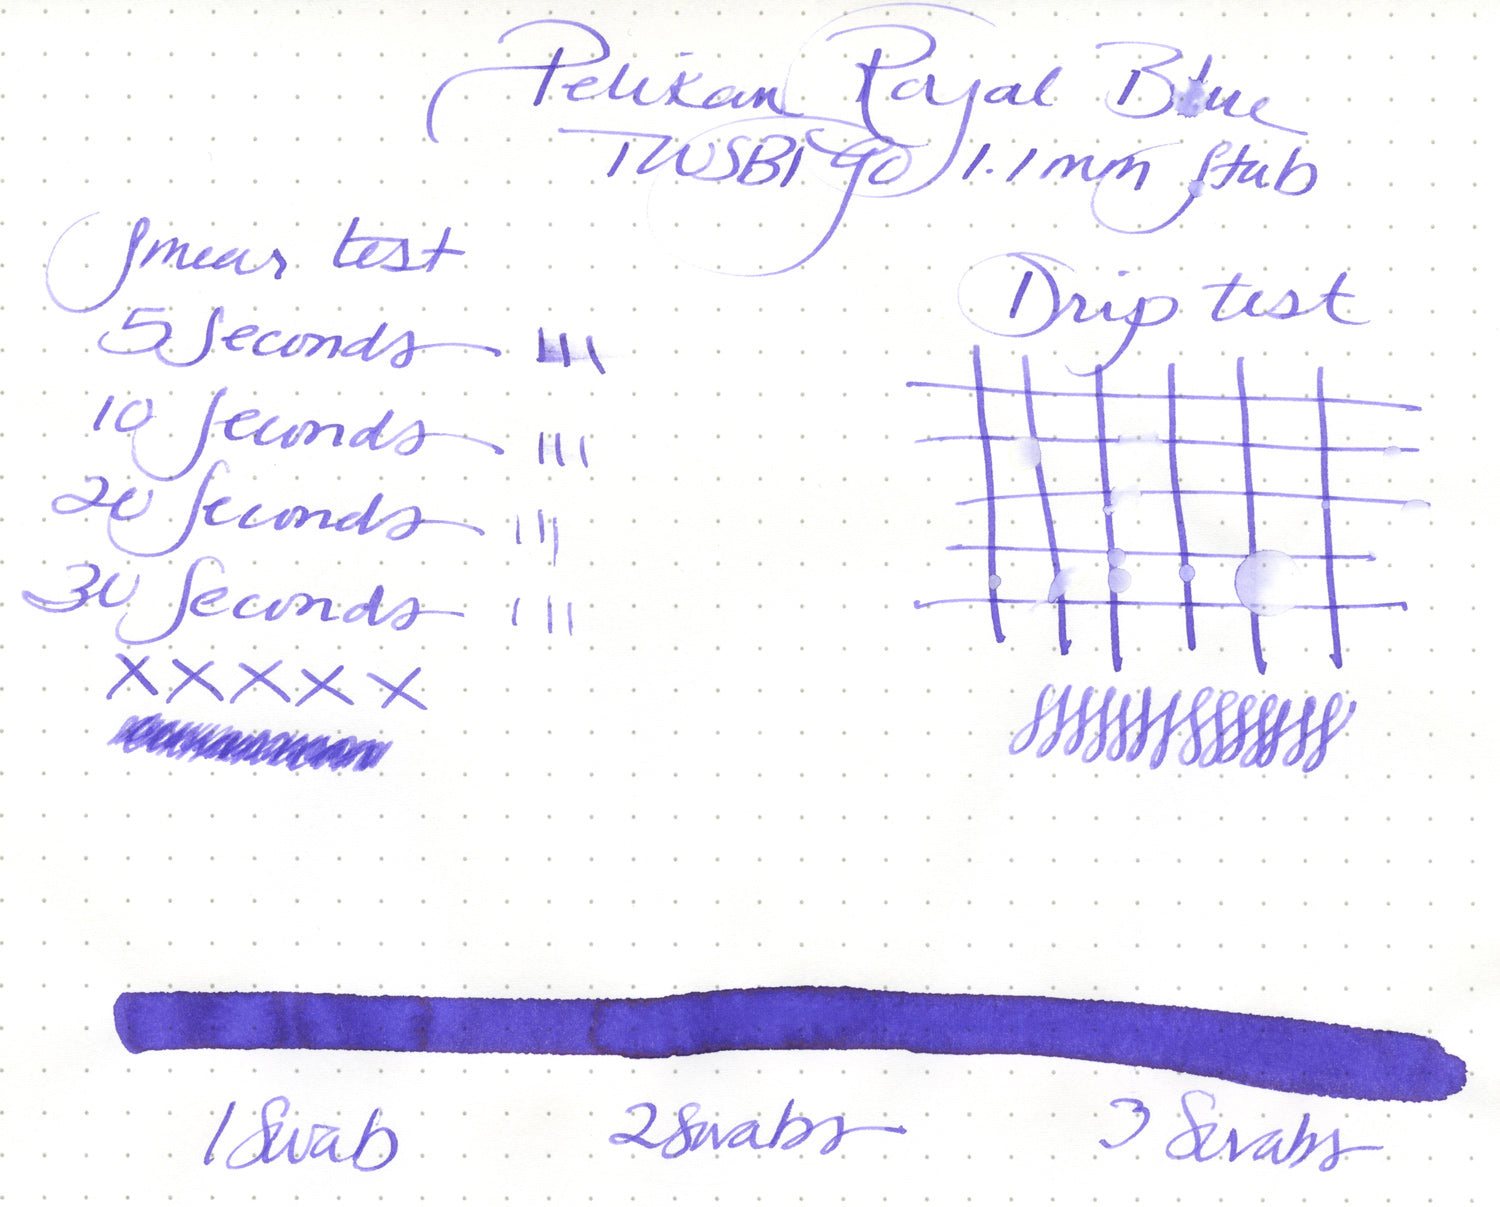 Pelikan Royal Blue
TWSBI Go 1.1mm Stub
Smear test
5 Seconds
10 Seconds
20 Seconds
30 Seconds
X X X X X
Drip test
1 Swab
2 Swabs
3 Swabs